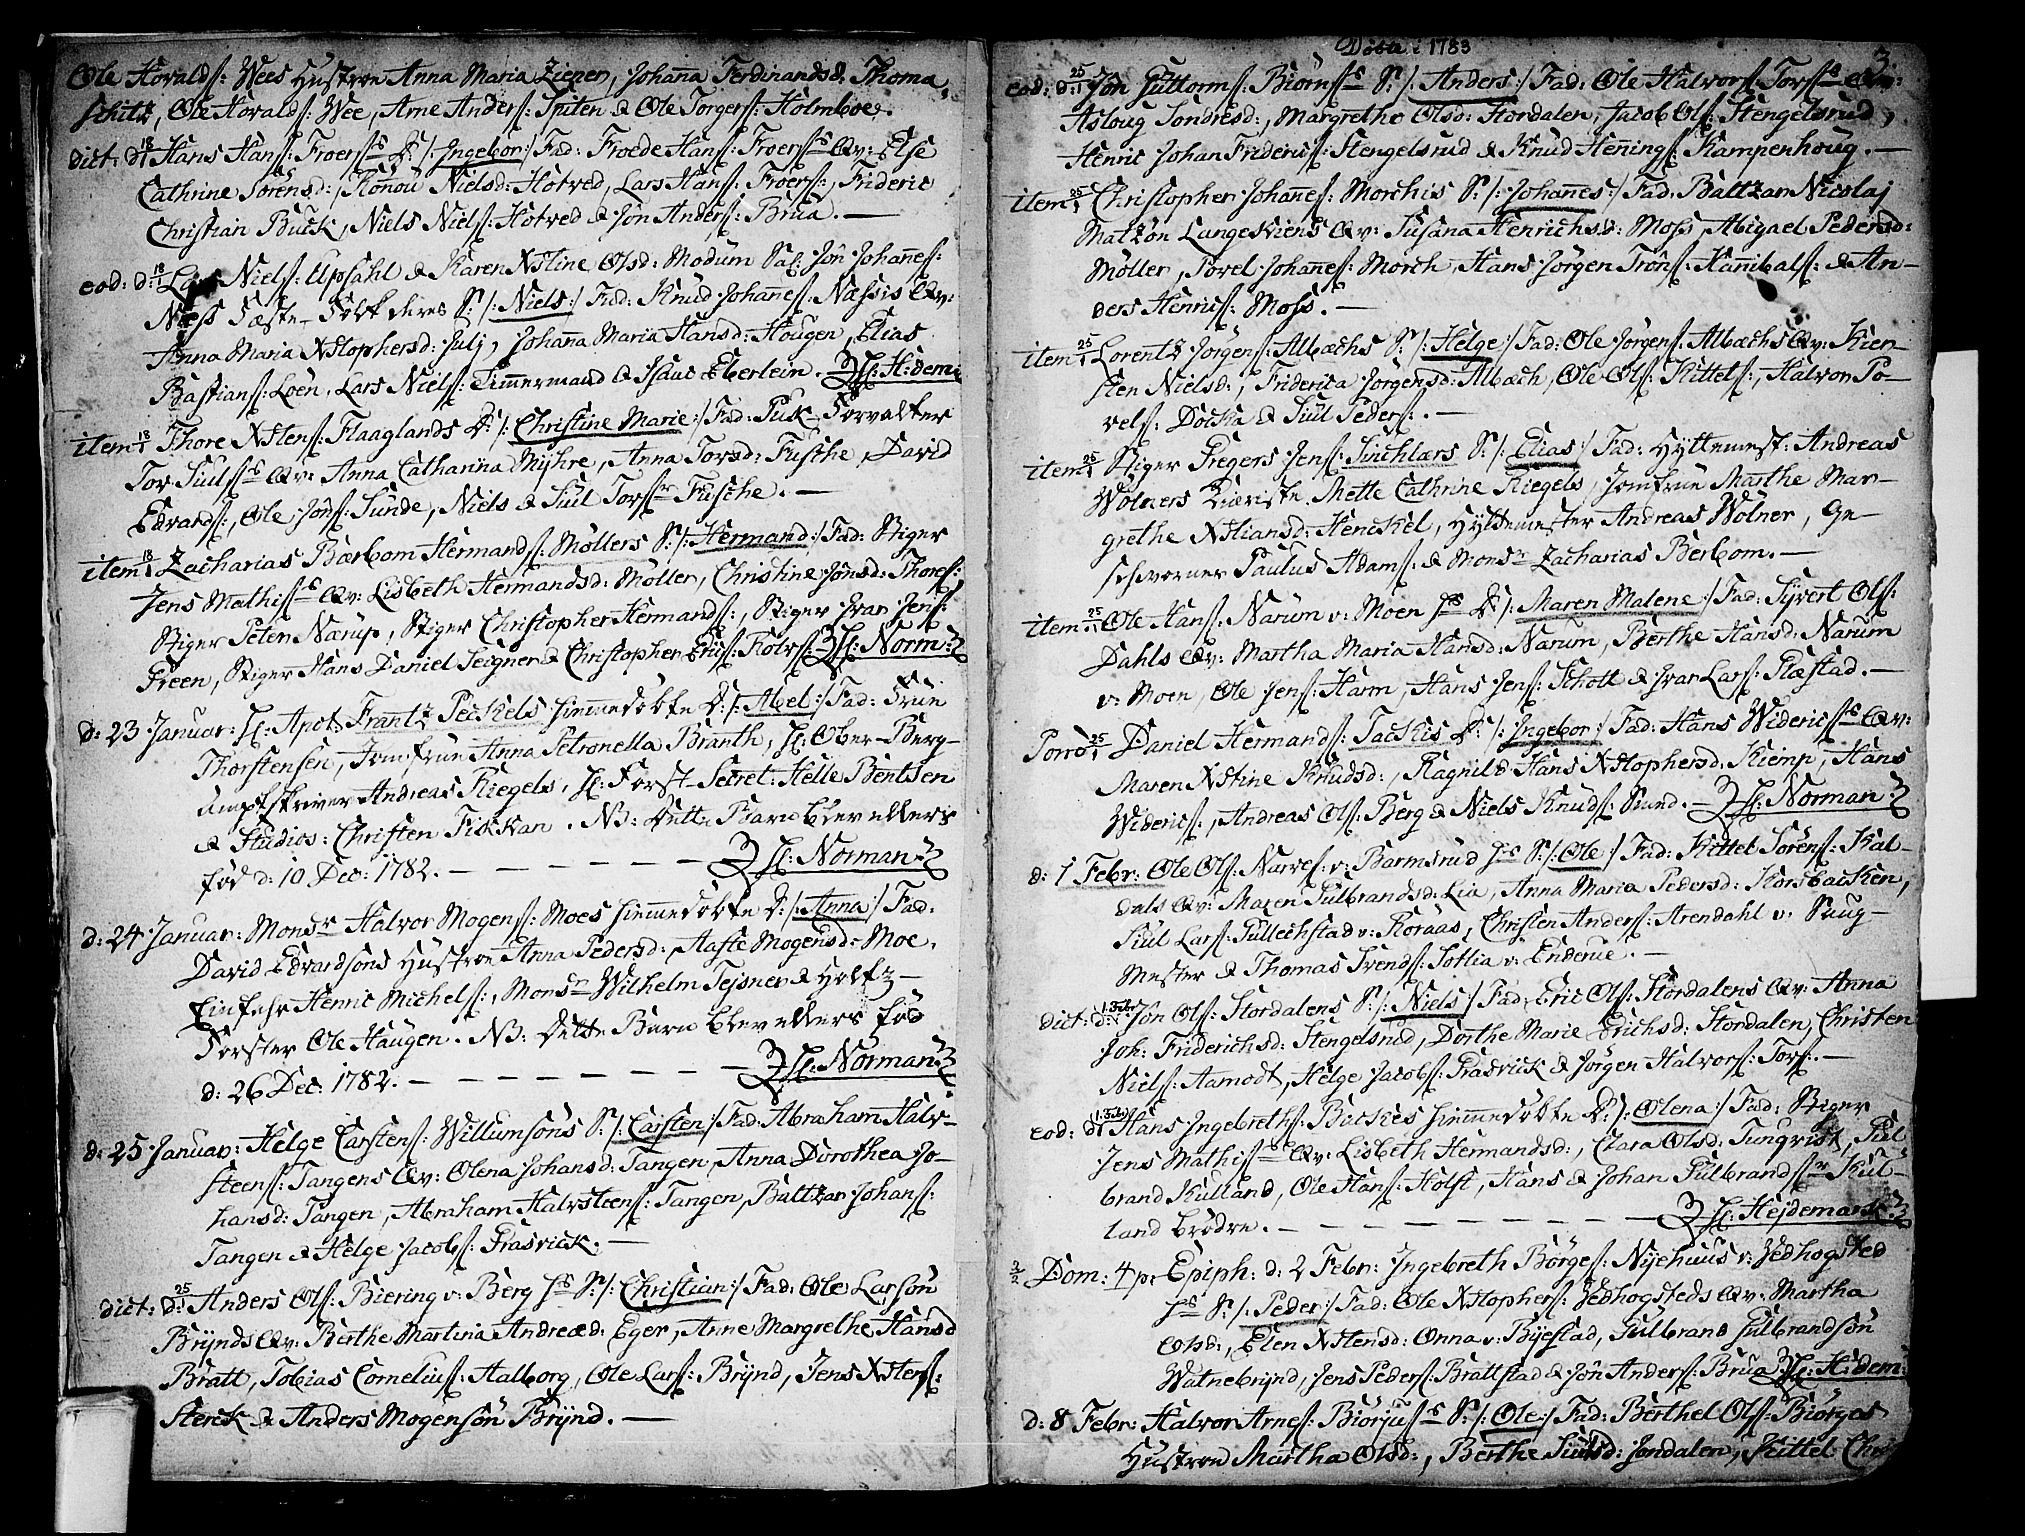 Ole Hovalds: Wees Hustroe Anna Maria Ziener, Johana Ferdinandsd. Thoma
Schitz, Ole Hovalds: Wee, Arne Anders: Spiten & Ole Torgers: Holmboe.
dict: d: 18/1 Hans Hans: Froers:s D: /: Ingebor :/ Fad: Froede Hans: Froers:s Qv: Else
Cathrine Sörensd:, Ronou Nielsd: Hotved, Lars Hans: Froers:, Frideric
Christian Buck, Niels Niels: Hotved & Jön Anders: Brua. —
eod: d: 18/1 Lars Niels: Upsahl & Karen Xstine Olsd: Modum Sal: Jön Johanes:
Næss Fæste-Folk deres S: /: Niels :/ Fad: Knud Johanes: Næssis Qv:
Anna Maria Xstophersd: Julj, Johana Maria Hansd: Hougen, Elias
Bastians: Loen, Lars Niels: Timmermand & Isaac Eberlein. H: H:dem:
item 18/1 Thore Xstens: Flaaglands D: /: Christine Marie :/ Fad: Puk-Forvalter
Tor Siuls:s Qv: Anna Catharina Myhre, Anna Torsd: Fusche, David
Edvards:, Ole Jöns: Sunde, Niels & Siul Tors:r Fusche. —
item 18/1 Zacharias Barbom Hermands: Möllers S: /: Hermand :/ Fad: Stiger
Jens Mathis:s Qv: Lisbeth Hermandsd: Möller, Christine Jönsd: Thores:
Stiger Peter Nærup, Stiger Christopher Hermands:, Stiger Ivar Jens:
Green, Stiger Hans Daniel Seigner & Christopher Erics: Rolvs: H: Norm:
d: 23 Januar: H: Apot: Frantz Peckels hiemedöbte D: /: Abel :/ Fad: Frue
Thorstensen, Jomfrue Anna Petronella Branth, H: Ober-Berg-
amptskriver Andreas Riegels, H: Forst-Secret: Helle Bentsen
& Studios: Christen Fiskkan. NB: Dette Barn blev ellers
fød d: 10 Dec: 1782. — — — — — H: Norman
d: 24 Januar: Monsr Halvor Mogens: Moes hiemedöbte D: /: Anna :/ Fad:
David Edvardsons Hustroe Anna Pedersd: Aaste Mogensd: Moe,
Einfehr Henric Michels:, Monsr Wilhelm Tejsner & Holtz-
Forster Ole Haugen. NB: Dette Barn blev ellers fød
d: 26 Dec: 1782. — — — — — — H: Norman
d: 25 Januar: Helge Carstens: Willumsöns S: /: Carsten :/ Fad: Abraham Halv-
steens: Tangens Qv: Olena Johansd: Tangen, Anna Dorothea Jo-
hansd: Tangen, Abraham Halvsteens: Tangen, Baltzar Johans:
Tangen & Helge Jacobs: Prasvick. —
dict: d: 25 Anders Ols: Biering v: Berg hs S: /: Christian :/ Fad: Ole Larsön
Brÿnds Qv: Berthe Martina Andreæd: Eger, Anne Margrethe Hansd
Bratt, Tobias Cornelius: Aalborg, Ole Lars: Brÿnd, Jens Xstens:
Sterck & Anders Mogensön Brÿnd. —
Döbte i 1783
3.
eod: d: 25/1 Jön Guttorms: Biörns:s S: /: Anders :/ Fad: Ole Halvors: Tors:s Qv:
Asloug Tondresd:, Margrethe Olsd: Stordalen, Jacob Ols: Stengelsrud,
Henric Johan Frideric: Stengelsrud & Knud Henings: Kampenhoug. —
item 25/1 Christopher Johanes: Morchis S: /: Johannes :/ Fad: Baltzar Nicolaj
Matzön Langeskiens Qv: Susana Henrichsd: Moss, Abigael Pedersd:
Möller, Povel Johanes: Morch, Hans Jörgen Tröns: Hanibals: & An-
ders Henrics: Moss. —
item 25/1 Lorentz Jörgens: Albachs S: /: Helge :/ Fad: Ole Jörgens: Albachs Qv: Kier-
sten Nielsd:, Friderica Jörgensd: Albach, Ole Ols: Kittels:, Halvor Po-
vels: Docka & Siul Peders:. —
item 25/1 Stiger Gregers Jens: Sinchlars S: /: Elias :/ Fad: Hyttemest: Andreas
Wölners Kiæriste Mette Cathrine Riegels, Jomfrue Marthe Mar-
grethe Xstiansd: Henckel, Hyttemester Andreas Wölner, Ge-
schworner Paulus Adams: & Monsr Zacharias Berbom. —
item 25/1 Ole Hans: Narum v: Moen hs D: /: Maren Malene :/ Fad: Syvert Ols:
Dahls Qv: Martha Maria Hansd: Narum, Berthe Hansd: Narum
v: Moen, Ole Jens: Harm, Hans Jens: Schott & Ivar Lars: Ræstad. —
Porro 25/1 Daniel Hermands: Tackis D: /: Ingebor :/ Fad: Hans Widerics:s Qv:
Maren Xstine Knudsd:, Ragnild Hans Xstophersd: Kiemp, Hans
Widerics:, Andreas Ols: Berg & Niels Knuds: Sund. — H: Norman
d: 1 Febr: Ole Ols: Narves: v: Barmsrud hs S: /: Ole :/ Fad: Kittel Sörens: Kal-
dals Qv: Maren Gulbrandsd: Lia, Anna Maria Pedersd: Korsbacken,
Siul Lars: Gullechstad v: Roraas, Christen Anders: Arendahl v: Saug-
Mester & Thomas Svends: Sotlia v: Enderue. —
dict: d: 1. Febr: Jön Ols: Stordalens S: /: Niels :/ Fad: Eric Ols: Stordalens Qv: Anna
Joh: Friderichsd: Stengelsrud, Dorthe Marie Erichsd: Stordalen, Christen
Niels: Aamodt, Helge Jacobs: Prasvick & Jörgen Halvors: Tors:. —
eod: d: 1. Febr: Hans Ingebreths: Backes hiemedöbte D: /: Olena :/ Fad: Stiger
Jens Mathis:s Qv: Lisbeth Hermandsd:, Clara Olsd: Tunqvist, Gul-
brand Kulland, Ole Hans: Holst, Hans & Johan Gulbrands:r Kul-
land brödre. — — — — — — H: Hejdemark
2/2 Dom: 4 p: Epiph: d: 2 Febr: Ingebreth Börges: Nyehuus v: Jedhogsted
hs S: /: Peder :/ Fad: Ole Xstophers: Jedhogsteds Qv: Martha
Olsd:, Elen Xstensd: Onna v: Byestad, Gulbrand Gulbrandsön
Watnebrynd, Jens Peders: Brattstad & Jön Anders: Brua H: H:dem:
d: 8 Febr: Halvor Arnes: Biörjus:s S: /: Ole :/ Fad: Berthel Ols: Biörgas
Hustroe Martha Olsd:, Berthe Siulsd: Jondalen, Kittel Chri